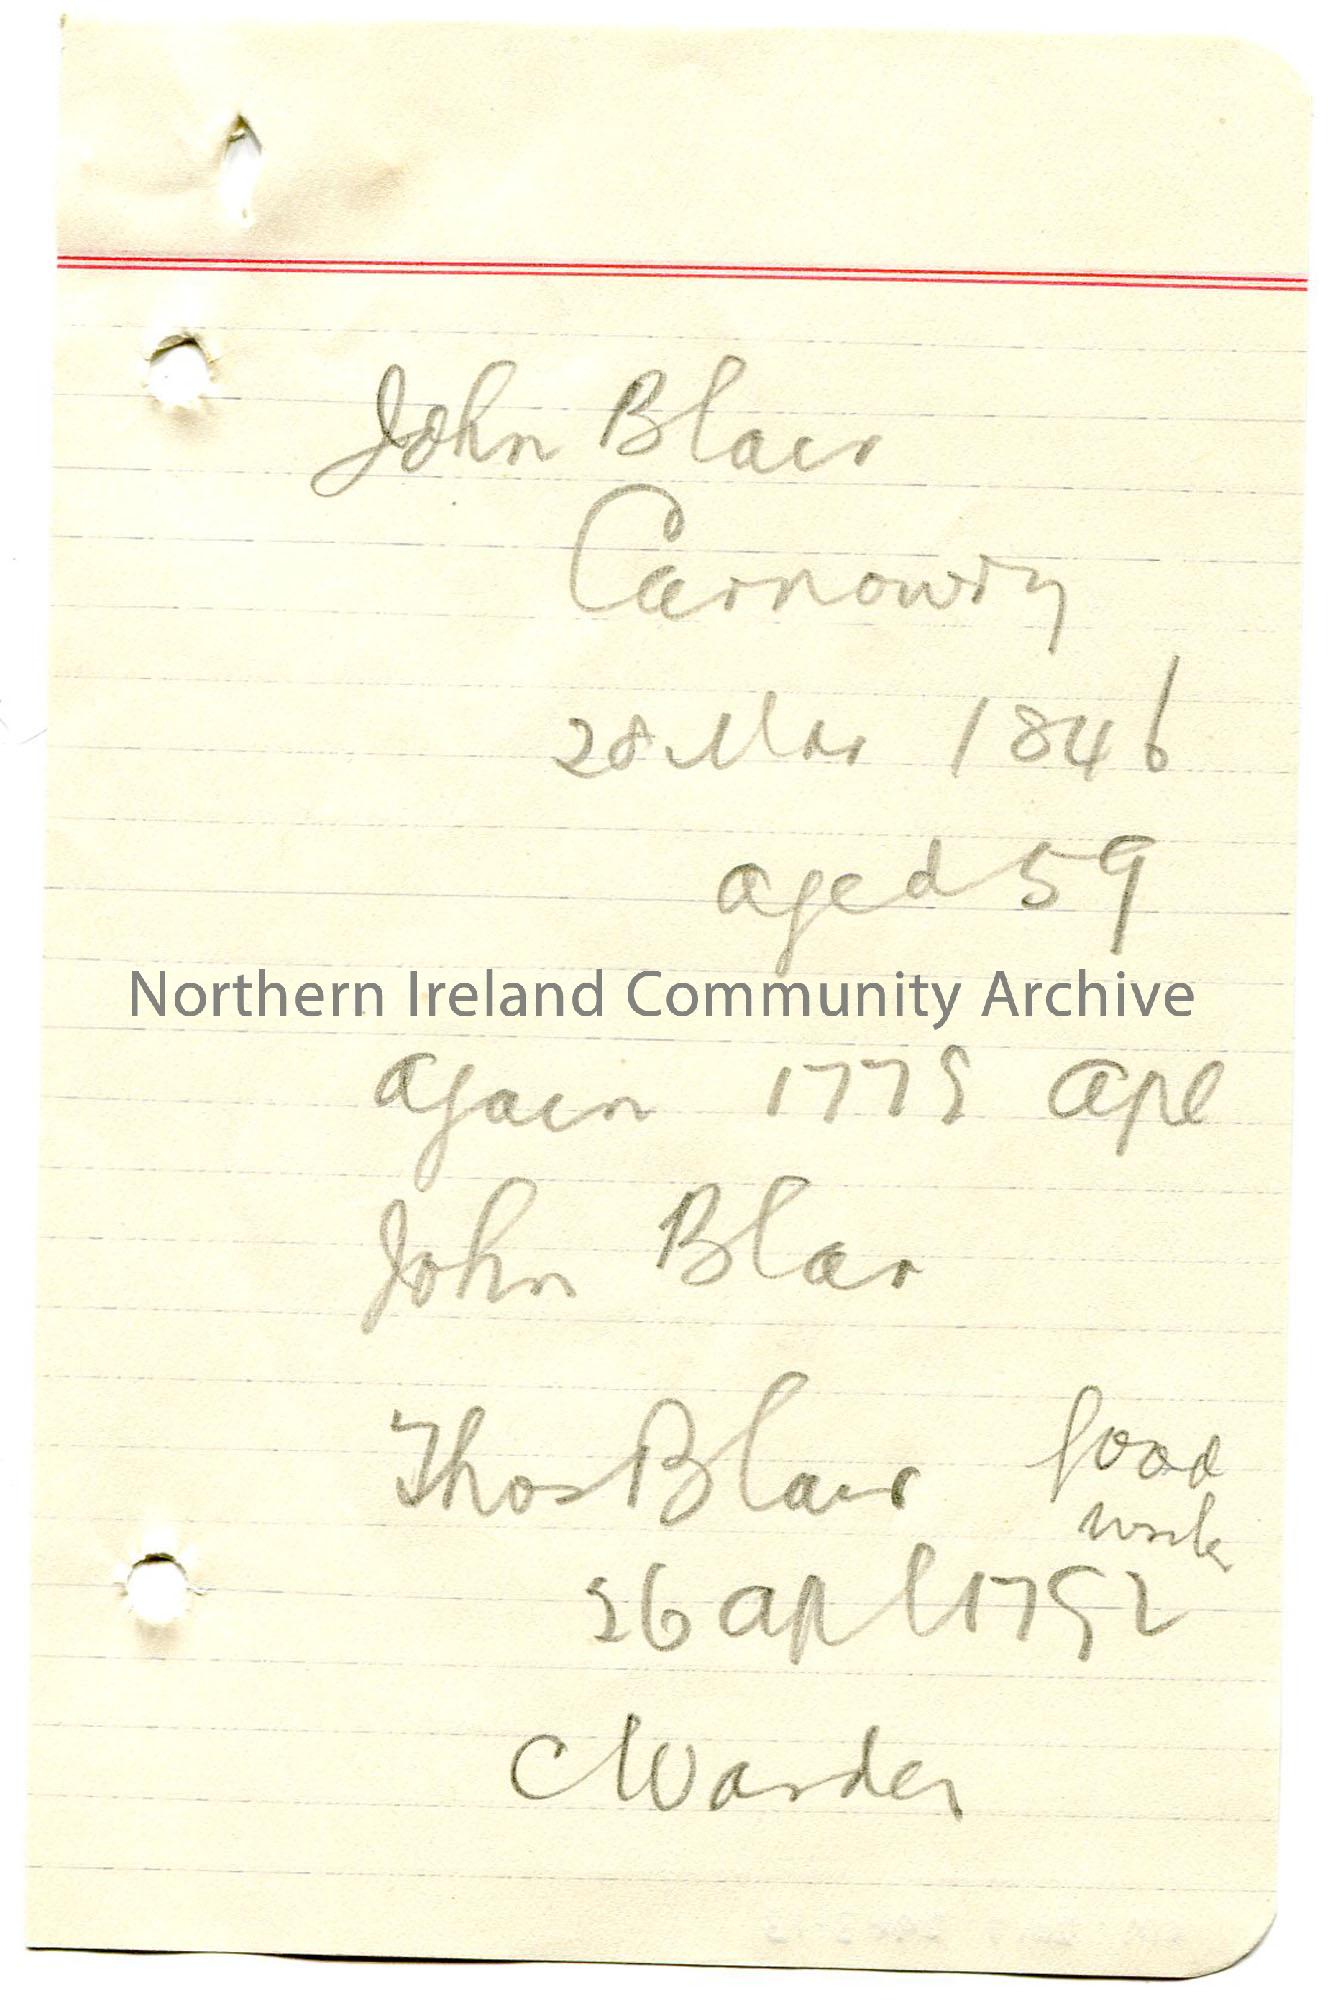 John Blair
Carnowry
28 Mar 1846
aged 59
Northern Ireland Community Archive
again 1775 Apl
John Blar
Thos Blair good
work
26 Apl 1792
C Warder